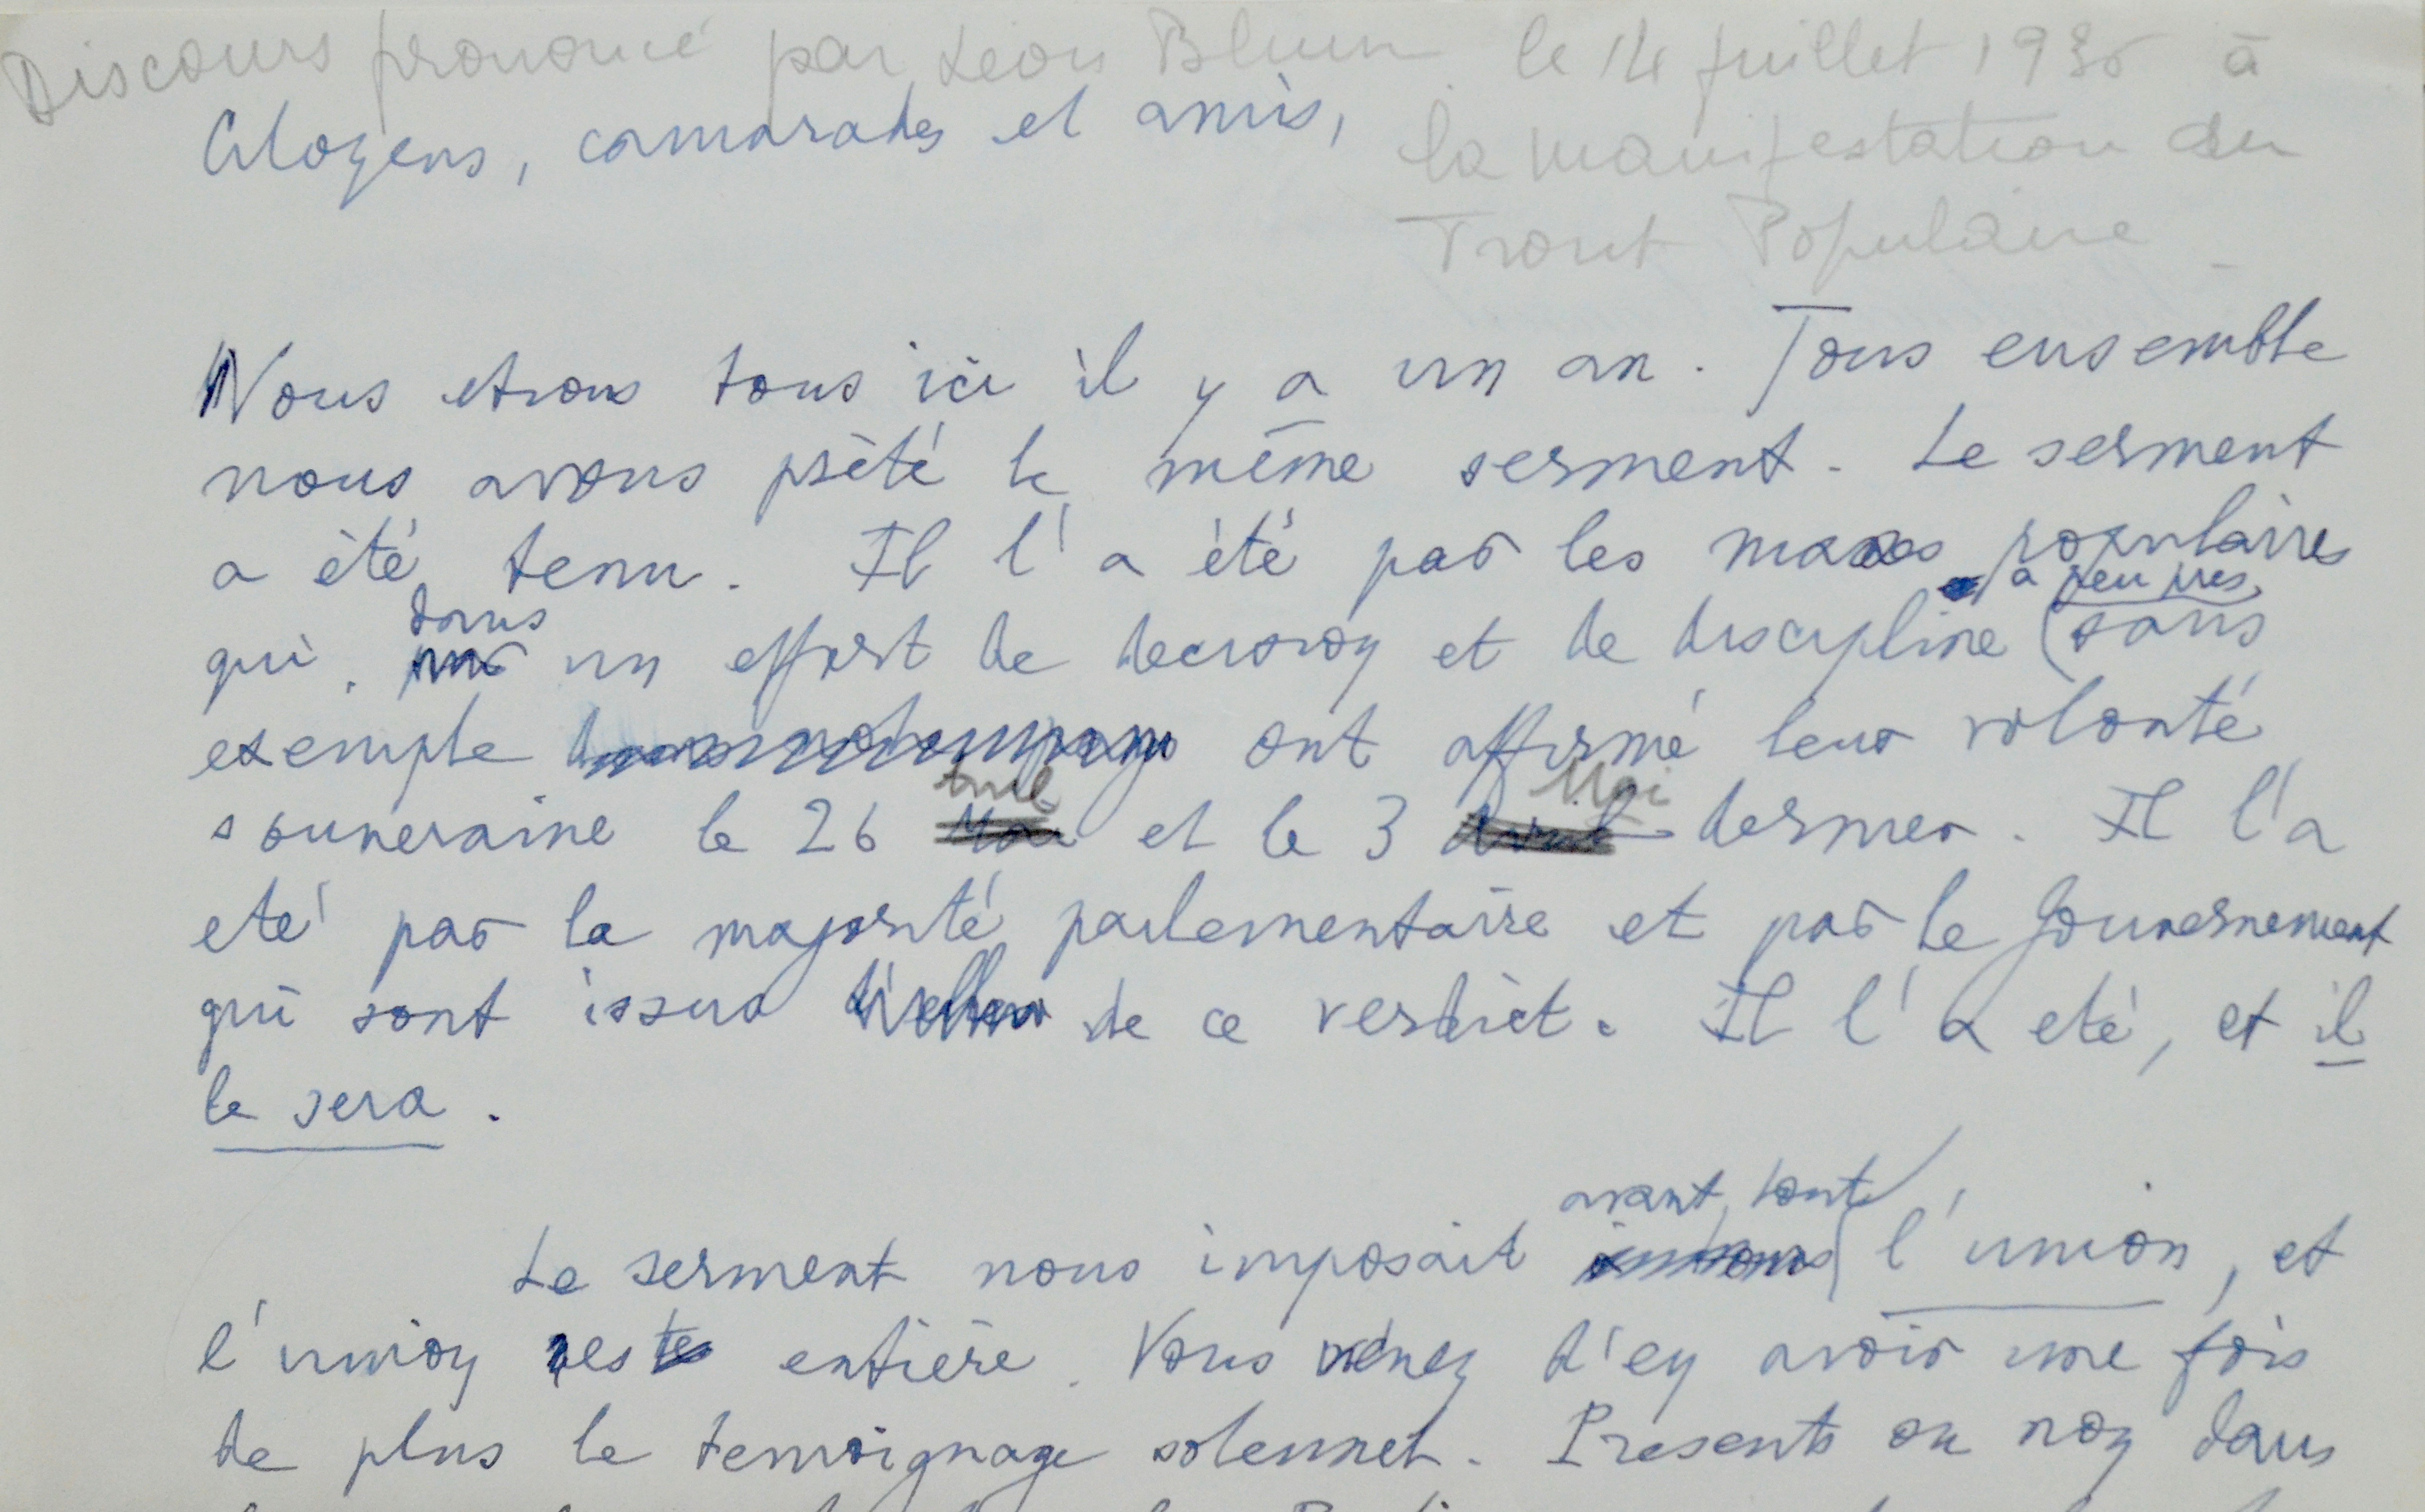 Discours prononcé par Léon Blum le 14 juillet 1936 à
la manifestation du
Front Populaire.
Citoyens, camarades et amis,
Nous etions tous ici il y a un an. Tous ensemble
nous avons prêté le même serment. Le serment
a été tenu. Il l'a été par les masses populaires
qui, dans un effort de decision et de discipline à peu près sans
exemple ont affirmé leur volonté
souveraine le 26 Avril et le 3 Mai dernier. Il l'a
eté par la majorité parlementaire et par le Gouvernement
qui sont issus de ce verdict. Il l'a eté, et il
le sera.
Le serment nous imposait avant tout l'union, et
l'union reste entière. Vous venez d'en avoir une fois
de plus le temoignage solennel. Presents ou non dans